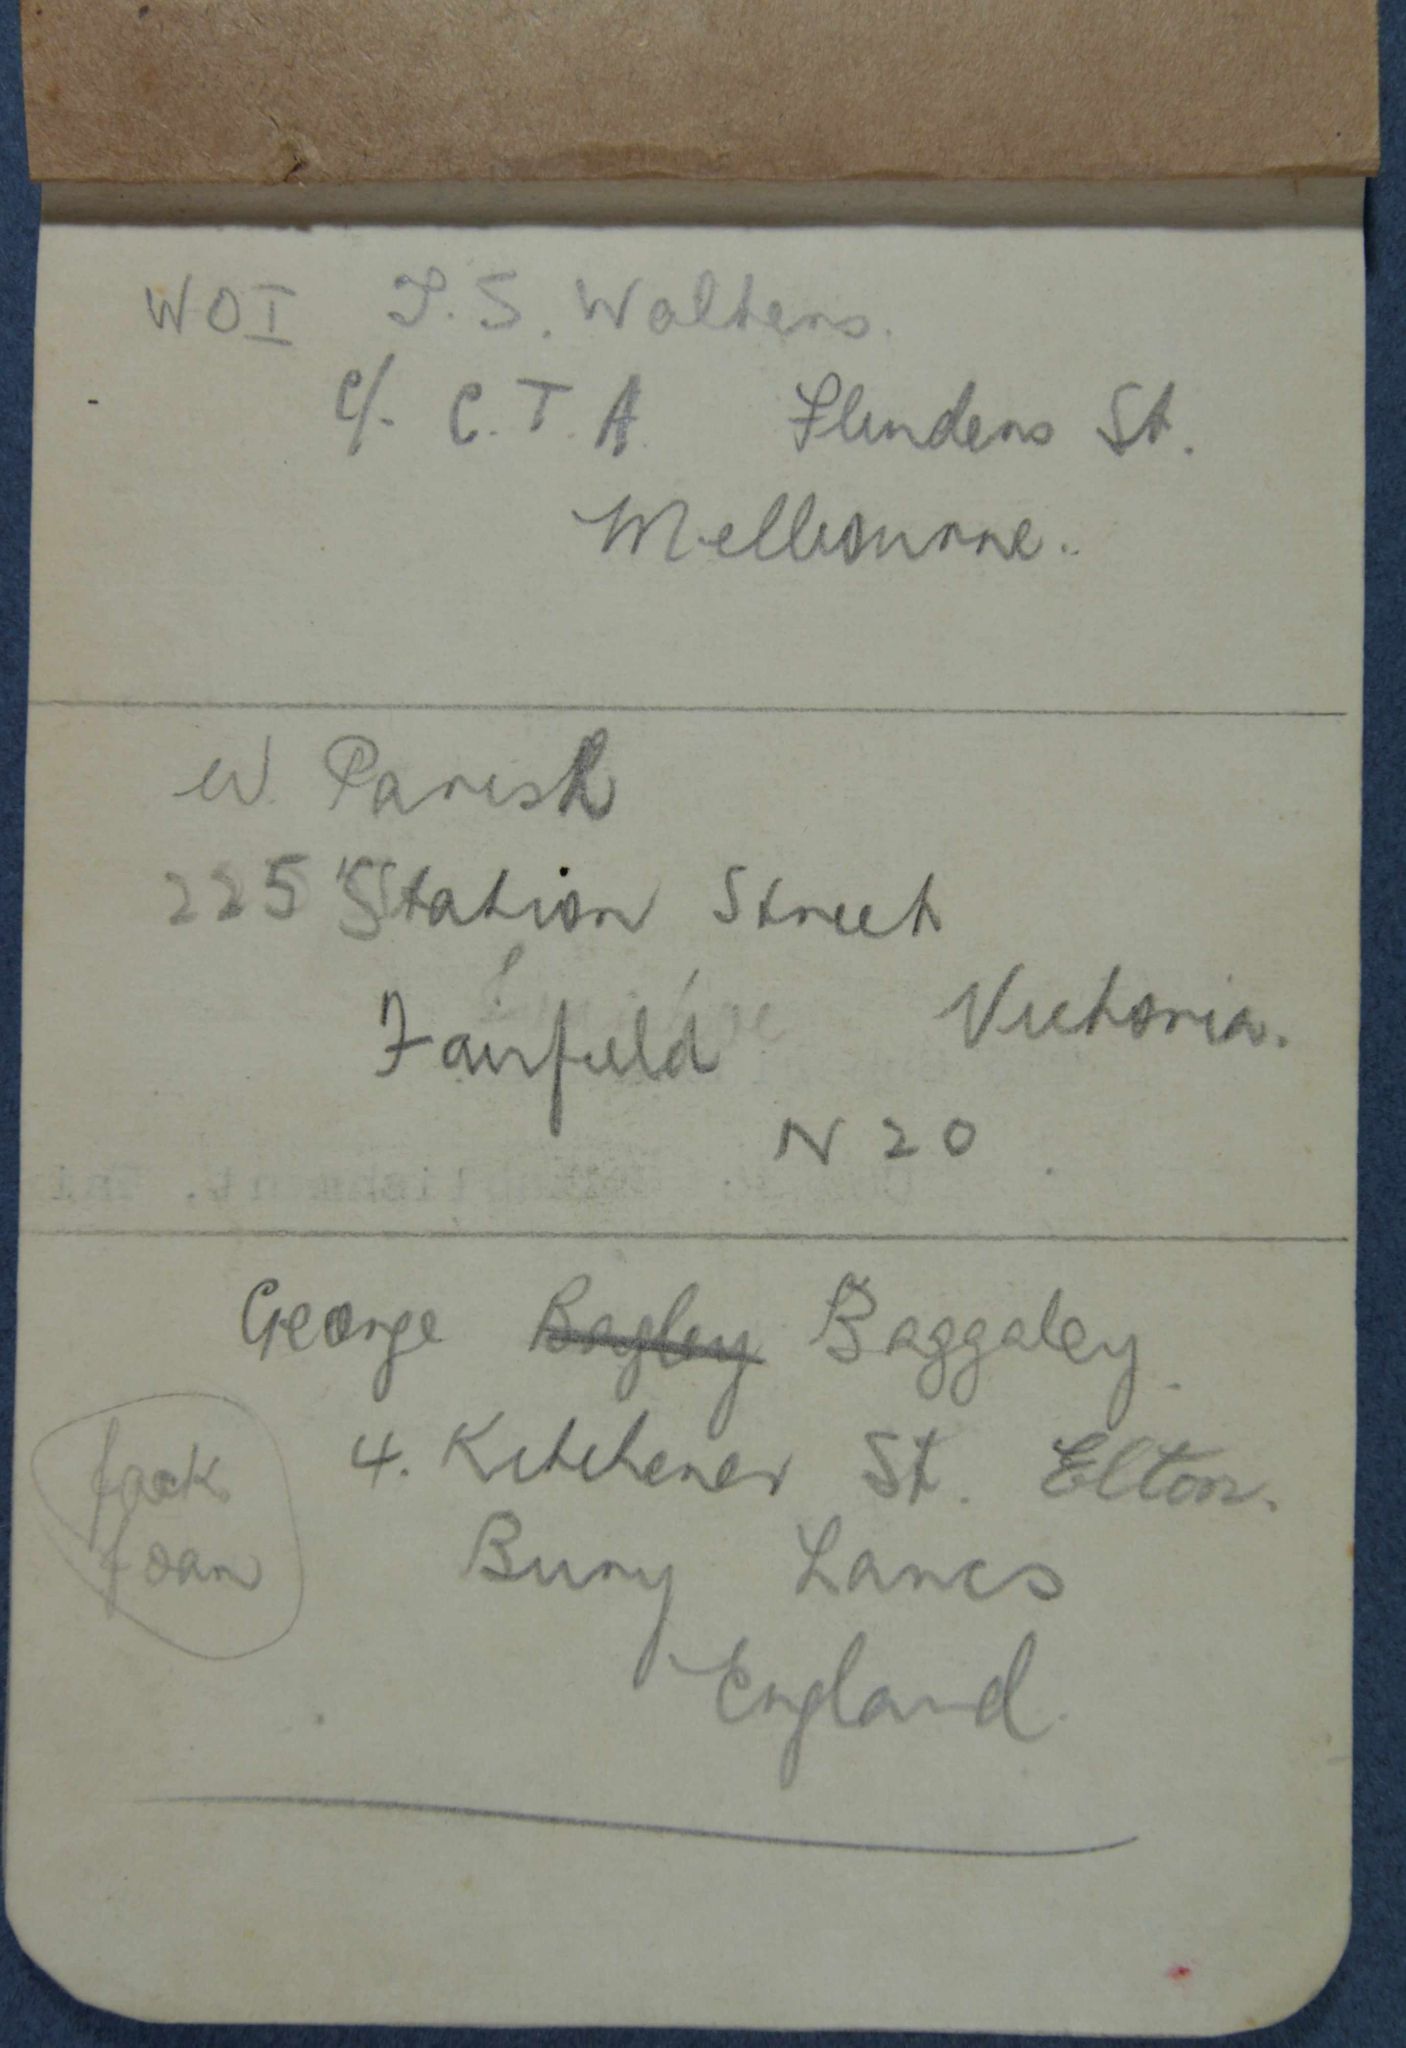 WO I J. S. Walters.
c/. C. T. A. Flinders St.
Melbourne.
W. Parish
225 Station Street
Fairfield Victoria.
N 20
George Bagley Baggaley.
4. Kitchener St. Elton.
Jack
Joan
Bury Lancs
England.